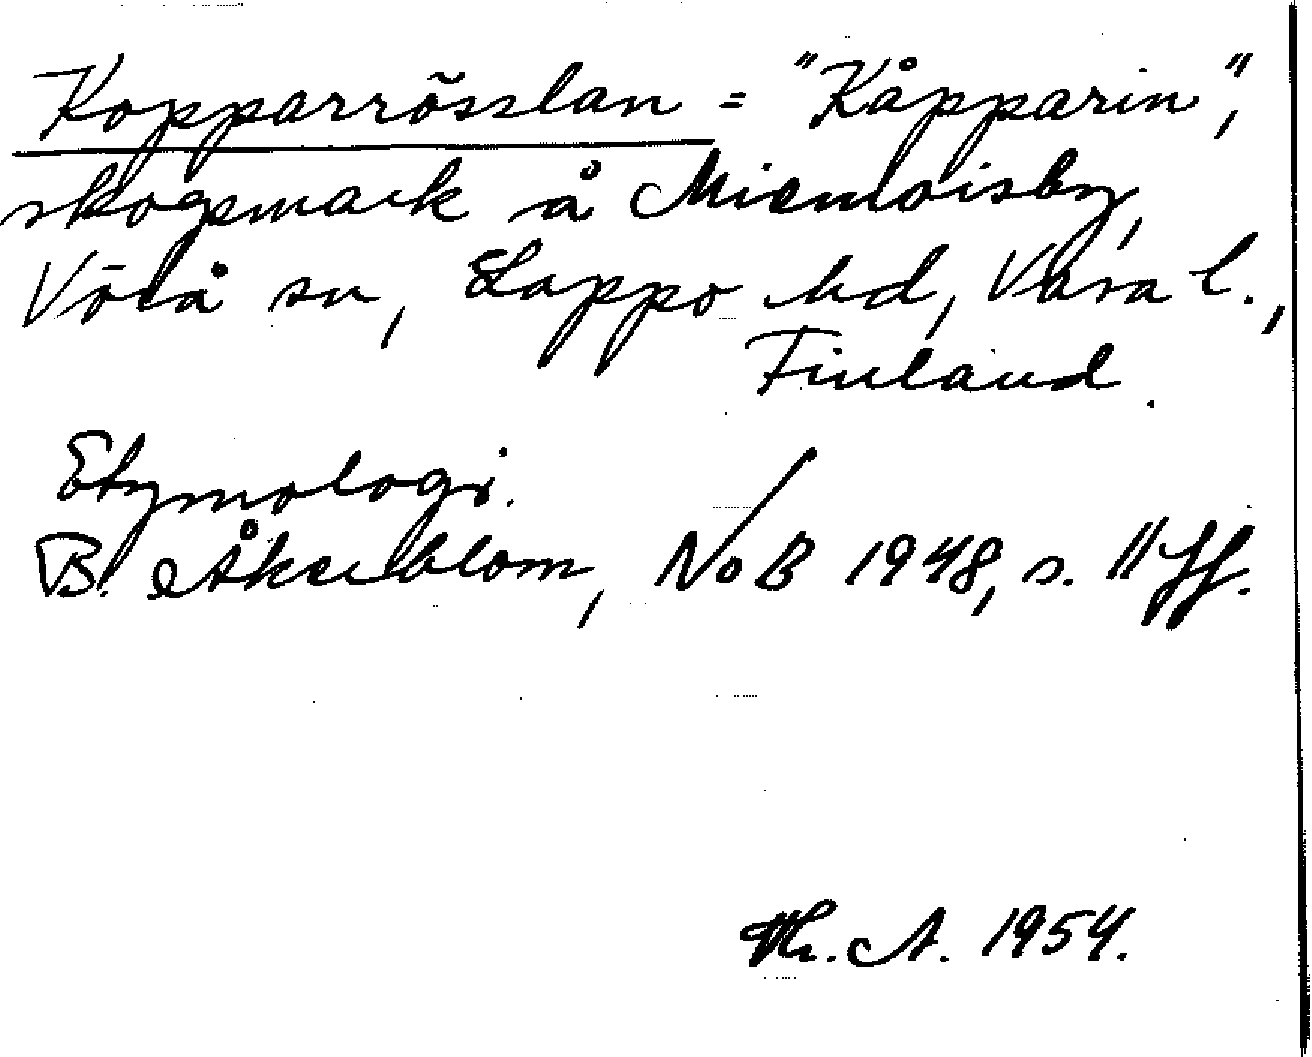 Kopparrösslan = "Kåpparin",
skogsmark å Miemoisby,
Vörå sn, Lappo hd, Vasa l.,
Finland.
Etymologi.
B. Åkerblom, NoB 1948, s. 11 ff.
Th. A. 1954.